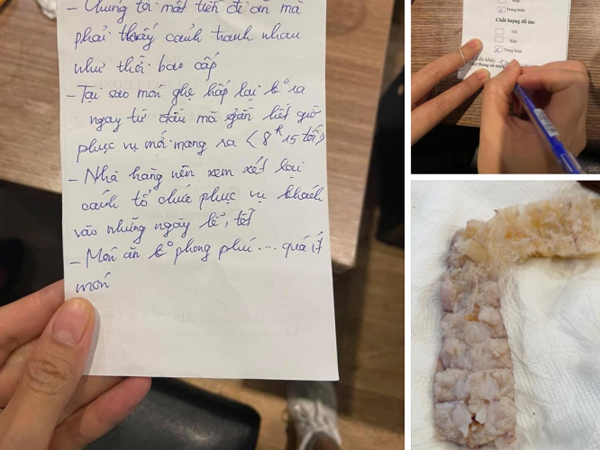 - Chúng tôi mất tiền đi ăn mà
phải thấy cảnh tranh nhau
như thời bao cấp
- Tại sao món ghẹ hấp lại k° ra
ngay từ đầu mà gần hết giờ
phục vụ mới mang ra (8h15 tối)
- Nhà hàng nên xem xét lại
cách tổ chức phục vụ khách
vào những ngày lễ, tết
- Món ăn k° phong phú... quá ít
món
Khá
Trung bình
Chất lượng đồ ăn:
Tốt
Khá
Trung bình